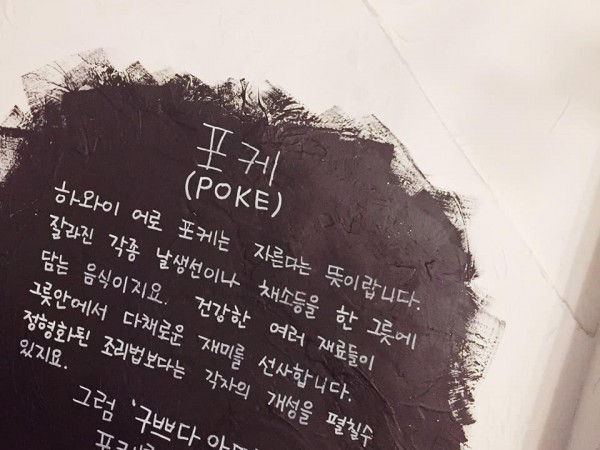 포케
(POKE)
하와이 어로 포케는 자른다는 뜻이랍니다.
잘라진 각종 날생선이나 채소등을 한 그릇에
담는 음식이지요. 건강한 여러 재료들이
그릇안에서 다채로운 재미를 선사합니다.
정형화된 조리법보다는 각자의 개성을 펼칠수
있지요.
그럼 '구쁘다